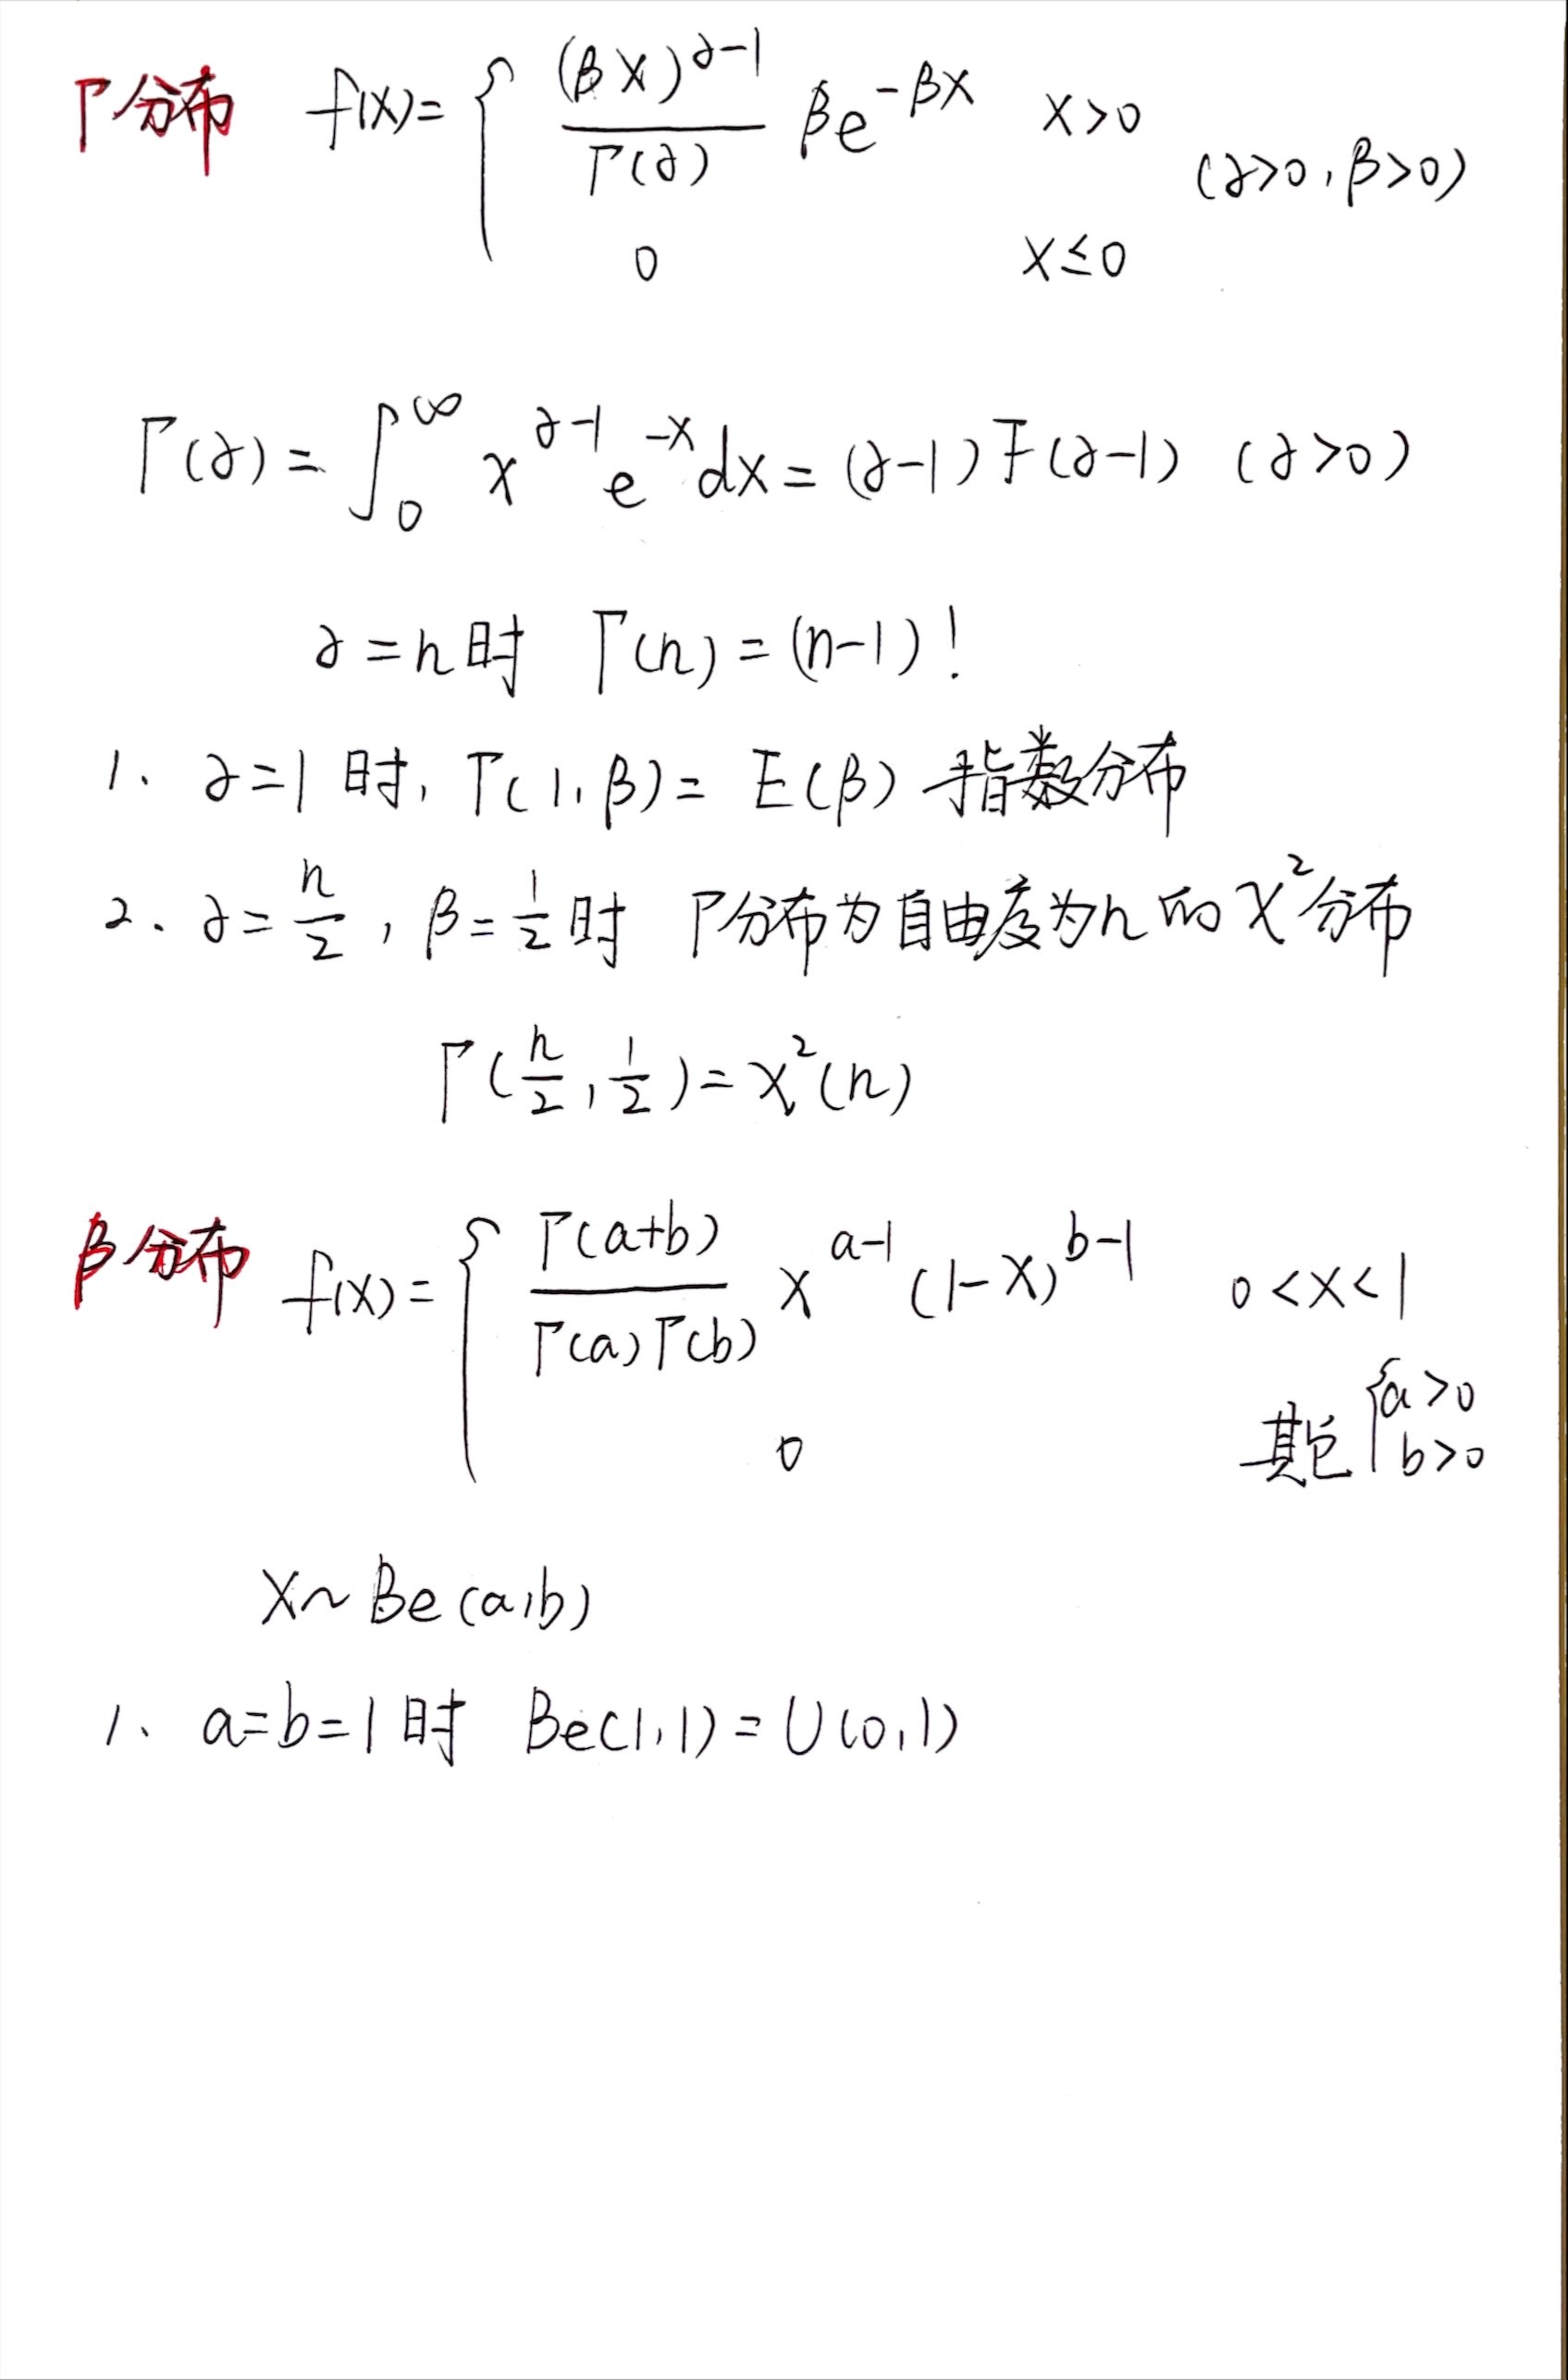 Γ分布 f(x)= { (βx)^(α-1) / Γ(α) βe^(-βx) x>0
(α>0, β>0)
0 x≤0
Γ(α)=∫_0^∞ x^(α-1) e^(-x) dx=(α-1)Γ(α-1) (α>0)
α=n时 Γ(n)=(n-1)!
1、α=1时, Γ(1,β)=E(β) 指数分布
2、α=n/2, β=1/2时 Γ分布为自由度为n的χ²分布
Γ(n/2, 1/2)=χ²(n)
β分布 f(x)= { Γ(a+b) / Γ(a)Γ(b) x^(a-1) (1-x)^(b-1) 0<x<1
0 其它 { a>0
b>0
X~Be(a,b)
1、a=b=1时 Be(1,1)=U(0,1)